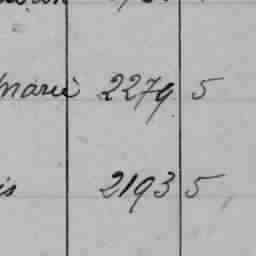 marie 2279 5
is 2193 5